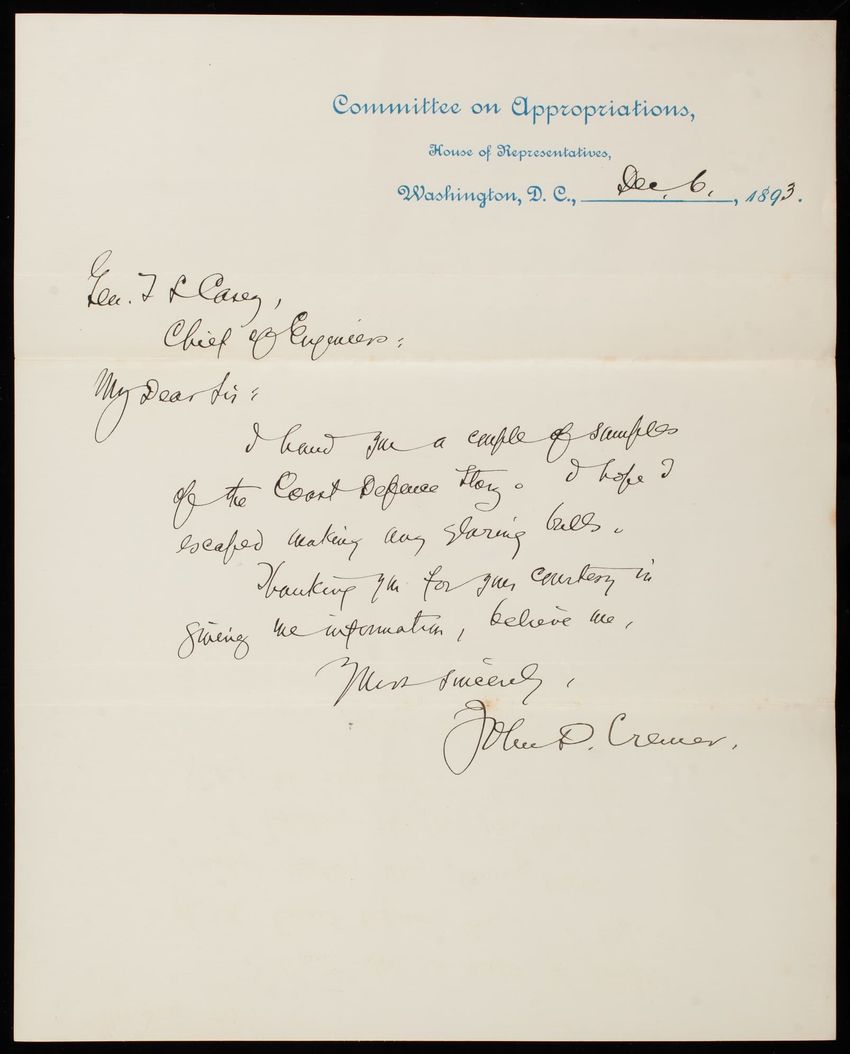 Committee on Appropriations,
House of Representatives,
Washington, D. C., Dec. 6., 1893.
Gen. T L Casey,
Chief of Engineers:
My Dear Sir:
I hand you a couple of samples
of the Coast Defence Story. I hope I
escaped making any glaring bulls.
Thanking you for your courtesy in
giving me information, believe me,
Yours sincerely,
John D. Cremer.